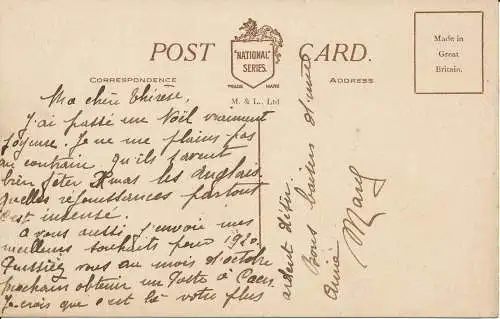 POST CARD.
"NATIONAL"
SERIES.
TRADE MARK
M. & L., Ltd
CORRESPONDENCE
ADDRESS
Made in
Great
Britain.
Ma chère Thérèse,
J'ai passé un Noël vraiment
joyeux. Je ne me plains pas
au contraire. Qu'ils savent
bien fêter Xmas les Anglais.
Quelles réjouissances partout
C'est insensé.
A vous aussi, j'envoie mes
meilleurs souhaits pour 1920.
Puissiez vous au mois d'octobre
prochain obtenir un poste à Caen.
Je crois que c'est là votre plus
ardent désir.
Bons baisers d'une
amie
Mary